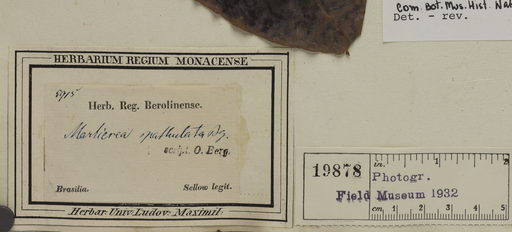 Com. Bot. Mus. Hist. Nat
Det. - rev.
HERBARIUM REGIUM MONACENSE
5915
Herb. Reg. Berolinense.
Marlierea spathulata Bg.
script. O. Berg.
Brasilia. Sellow legit.
Herbar. Univ. Ludov. Maximil.
19878
in. 1 2
Photogr.
Field Museum 1932
cm. 1 2 3 4 5